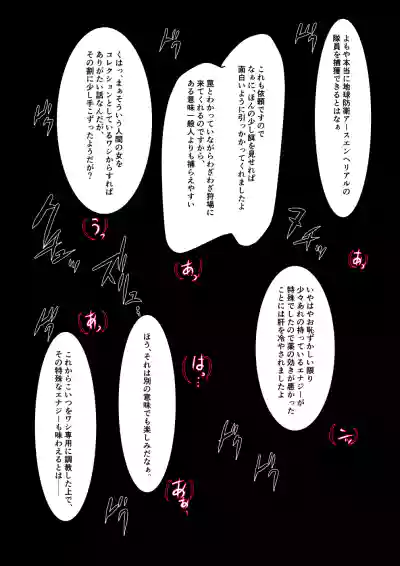 よもや本当に地球防衛アースエンヘリアルの
隊員を捕獲できるとはなぁ
これも依頼ですので
なぁに、ほんの少し餌を見せれば
面白いように引っかかってくれましたよ
罠とわかっていながらわざわざ狩場に
来てくれるのですから、
ある意味一般人よりも捕らえやすい
くはっ、まぁそういう人間の女を
コレクションとしているワシからすれば
ありがたい話なんだが、
その割に少し手こずったようだが?
ヌチッ
ドプッ
グチュッ
うっ
あっ
あっ
ズチュッ
ドプッ
あっ
いやはやお恥ずかしい限り
少々あれの持っているエナジーが
特殊でしたので薬の効きが悪かった
ことには肝を冷やされましたよ
ほう、それは別の意味でも楽しみだなぁ。
これからこいつをワシ専用に調教した上で、
その特殊なエナジーも味わえるとは――
はっ…
ンっ
ドプッ
ドプッ
あぁっ
ドプッ